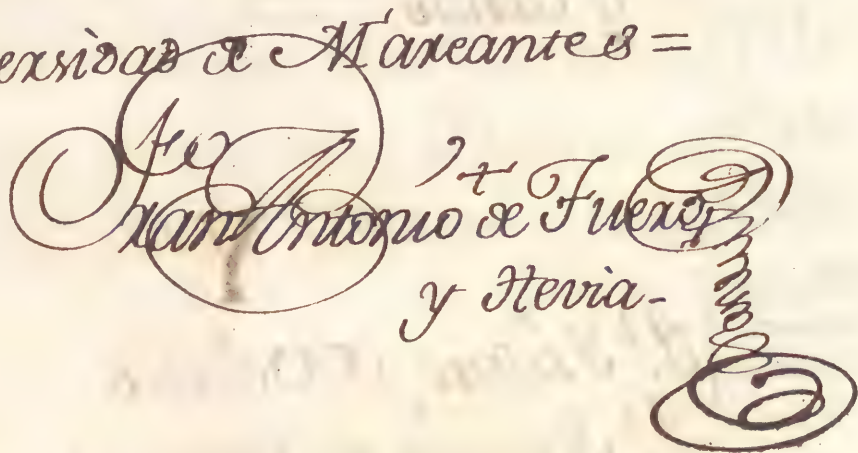 ersidad de Mareantes =
Franco Antonio de Fuero
y Hevia-